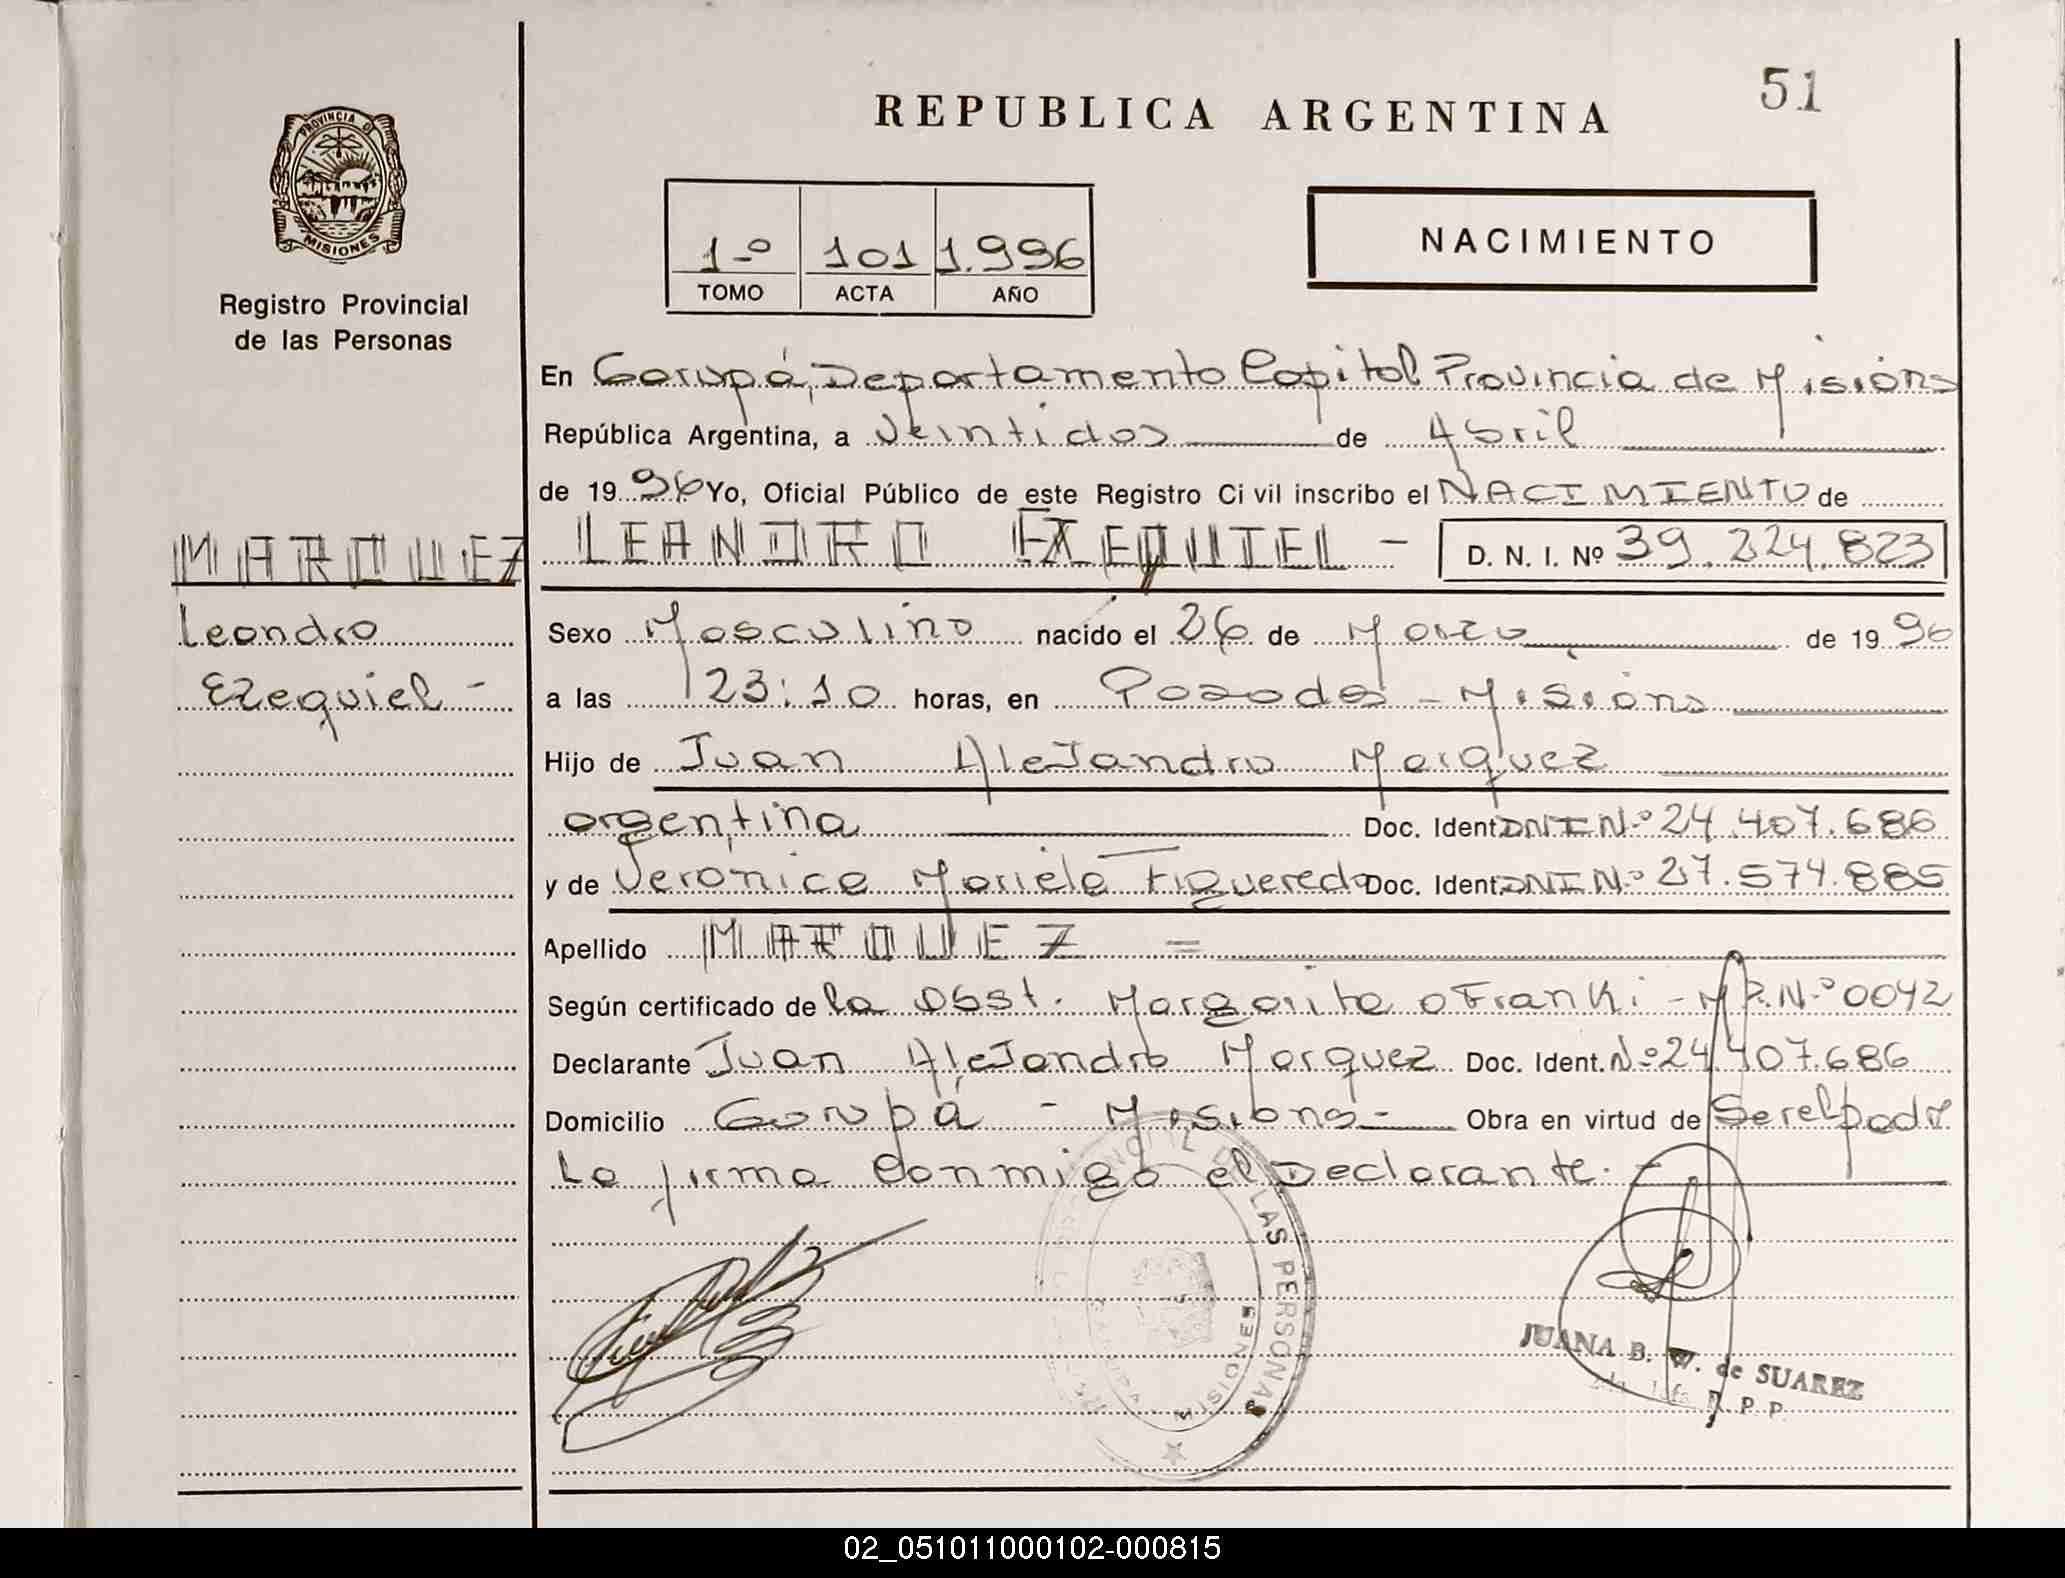 51
REPUBLICA ARGENTINA
PROVINCIA DE
MISIONES
Registro Provincial
de las Personas
1º 101 1.996
TOMO ACTA AÑO
NACIMIENTO
En Garupá, Departamento Capital Provincia de Misiones
República Argentina, a Veintidos de Abril
de 1996 Yo, Oficial Público de este Registro Civil inscribo el NACIMIENTO de
MARQUEZ
Leandro
Ezequiel -
LEANDRO EZEQUIEL - D. N. I. Nº 39.224.823
Sexo Masculino nacido el 26 de Marzo de 1996
a las 23:10 horas, en Posadas - Misiones
Hijo de Juan AleJandro Marquez
argentina Doc. Ident. DNI Nº 24.407.686
y de Veronica Mariela Figueredo Doc. Ident. DNI Nº 27.574.885
Apellido MARQUEZ =
Según certificado de la Obst. Margarita Franki - M.P. Nº 0042
Declarante Juan AleJandro Marquez Doc. Ident. Nº 24.407.686
Domicilio Garupá - Misiones - Obra en virtud de Ser el padre
La firma Conmigo el Declarante. -
DE LAS PERSONAS
MISIONES
JUANA B. W. de SUAREZ
R. P. P.
02_051011000102-000815